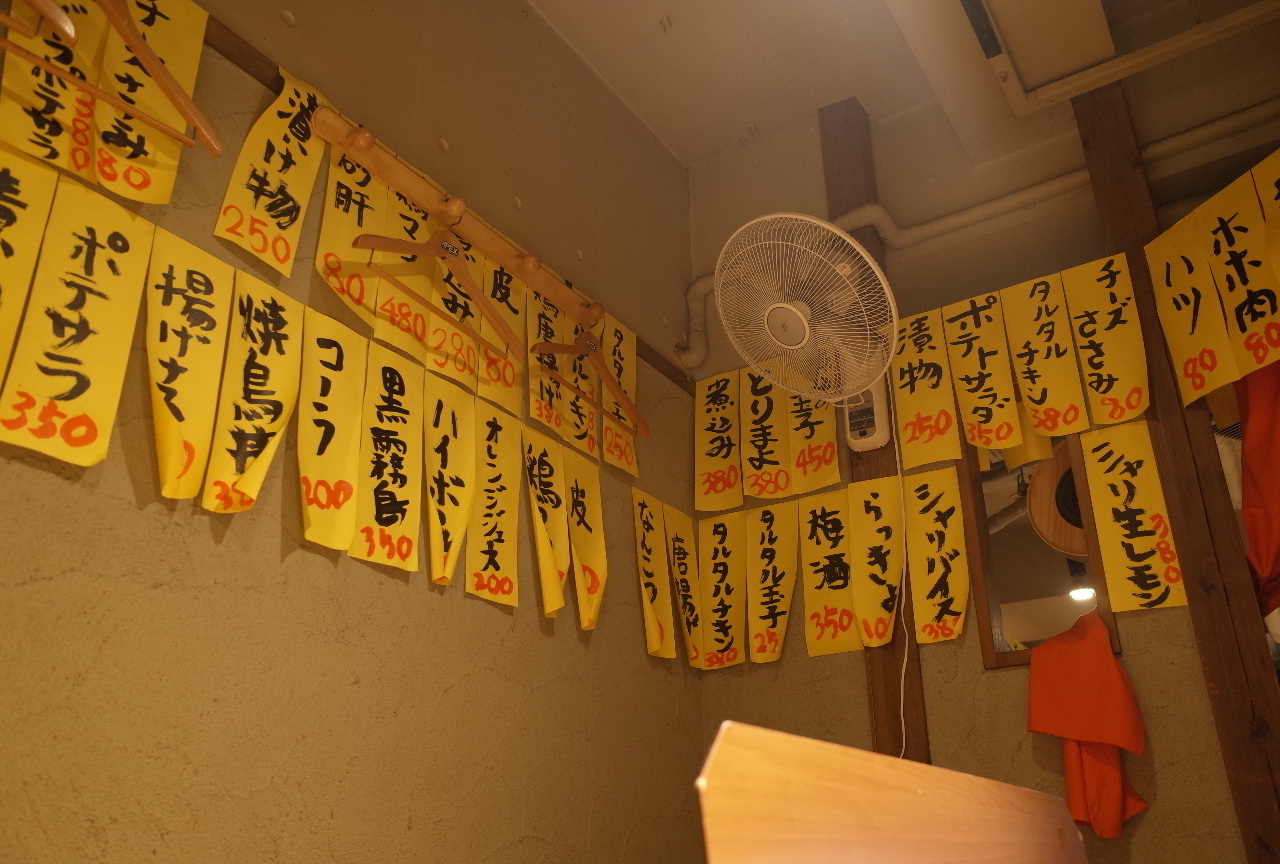 ポテサラ
380
80
漬け物
250
肝
80
480
380
皮
80
380
250
ポテサラ
350
揚げ
焼鳥丼
コーラ
200
黒霧島
350
ハイボー
オレンジジュース
200
鶏
皮
煮込み
380
とりまよ
380
450
漬物
250
ポテトサラダ
350
タルタルチキン
380
チーズささみ
80
ハツ
80
ホホ肉
80
なんこつ
唐揚げ
タルタルチキン
380
タルタル王子
25
梅酒
350
らっきょ
10
シャリバイス
38
シャリ生レモン
380